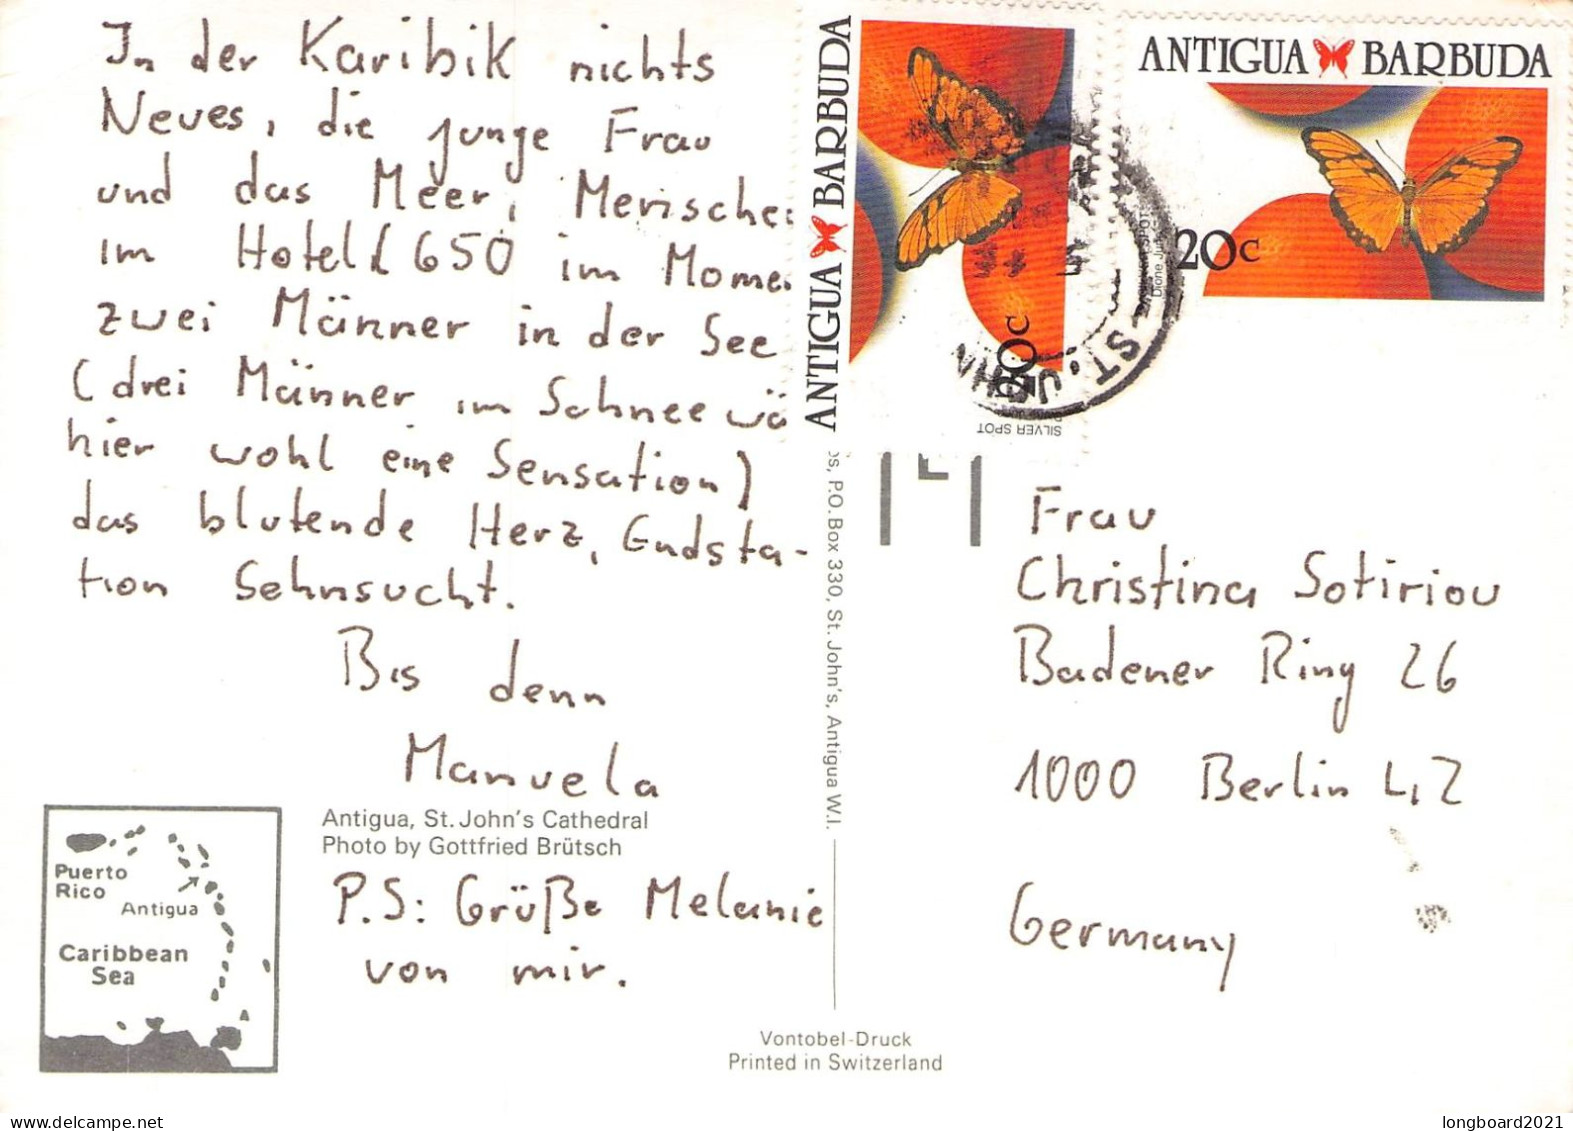 In der Karibik nichts
Neues, die junge Frau
und das Meer, Merische
im Hotel £ 650 im Mome
zwei Männer in der See
(drei Männer im Schnee wä
hier wohl eine Sensation)
das blutende Herz, Endsta-
tion Sehnsucht.
Bis denn
Manuela
Antigua, St. John's Cathedral
Photo by Gottfried Brütsch
P.S: Grüße Melanie
von mir.
Puerto
Rico
Antigua
Caribbean
Sea
ANTIGUA BARBUDA
20c
SILVER SPOT
ANTIGUA BARBUDA
20c
ST. JOHN
os, P.O. Box 330, St. John's, Antigua W.I.
Frau
Christina Sotiriou
Badener Ring 26
1000 Berlin 42
Germany
Vontobel-Druck
Printed in Switzerland
longboard2021